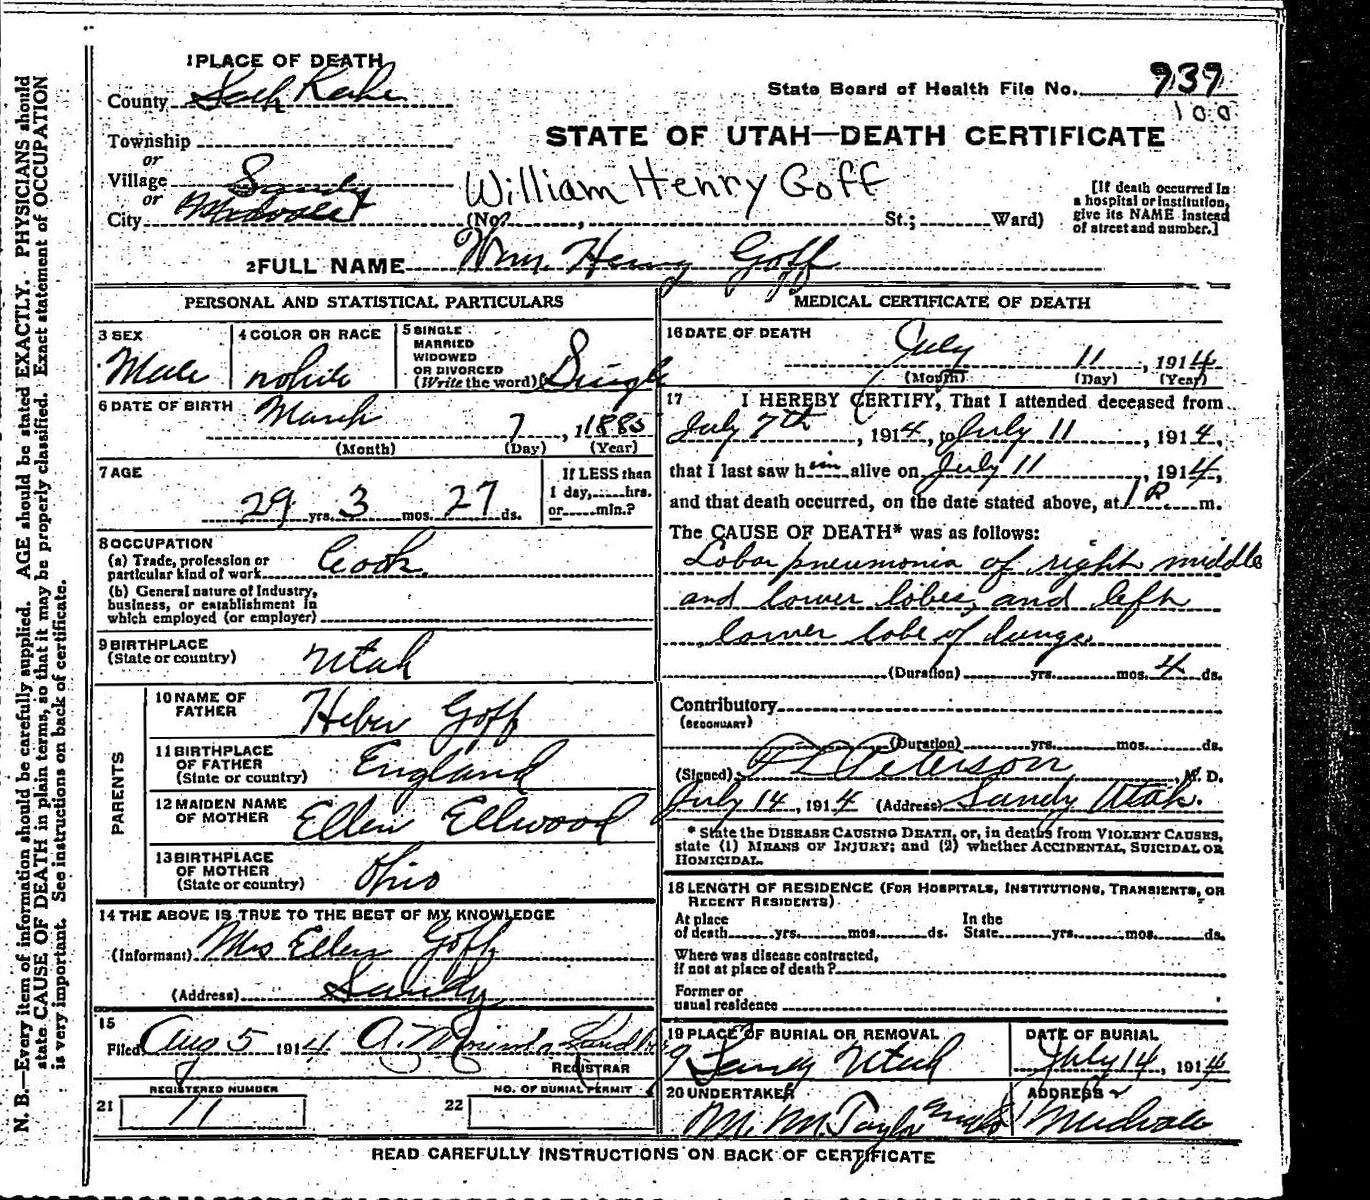 N. B.—Every item of information should be carefully supplied. AGE should be stated EXACTLY. PHYSICIANS should
state CAUSE OF DEATH in plain terms, so that it may be properly classified. Exact statement of OCCUPATION
is very important. See instructions on back of certificate.
1 PLACE OF DEATH
County Salt Lake
State Board of Health File No. 939
100
Township
or
STATE OF UTAH—DEATH CERTIFICATE
Village Sandy
or
City Midvale
William Henry Goff
(No. , St.; Ward)
[If death occurred in
a hospital or institution,
give its NAME instead
of street and number.]
2 FULL NAME Wm. Henry Goff
PERSONAL AND STATISTICAL PARTICULARS
3 SEX
Male
4 COLOR OR RACE
white
5 SINGLE
MARRIED
WIDOWED
OR DIVORCED
(Write the word) Single
6 DATE OF BIRTH March 7, 1885
(Month) (Day) (Year)
7 AGE
29 yrs. 3 mos. 27 ds.
If LESS than
1 day, hrs.
or min.?
8 OCCUPATION
(a) Trade, profession or
particular kind of work Cook
(b) General nature of Industry,
business, or establishment in
which employed (or employer)
9 BIRTHPLACE
(State or country) Utah
PARENTS
10 NAME OF
FATHER Heber Goff
11 BIRTHPLACE
OF FATHER
(State or country) England
12 MAIDEN NAME
OF MOTHER Ellen Ellwood
13 BIRTHPLACE
OF MOTHER
(State or country) Ohio
14 THE ABOVE IS TRUE TO THE BEST OF MY KNOWLEDGE
(Informant) Mrs Ellen Goff
(Address) Sandy
15
Filed Aug 5 1914 A.
REGISTRAR
REGISTERED NUMBER
21 11
NO. OF BURIAL PERMIT
22
MEDICAL CERTIFICATE OF DEATH
16 DATE OF DEATH
July 11, 1914
(Month) (Day) (Year)
17 I HEREBY CERTIFY, That I attended deceased from
July 7th, 1914, to July 11, 1914,
that I last saw him alive on July 11, 1914,
and that death occurred, on the date stated above, at 1 P. m.
The CAUSE OF DEATH* was as follows:
Lobar pneumonia of right middle
and lower lobes, and left
lower lobe of lungs.
(Duration) yrs. mos. 4 ds.
Contributory
(SECONDARY)
(Duration) yrs. mos. ds.
(Signed) Peterson, M. D.
July 14, 1914 (Address) Sandy Utah.
* State the DISEASE CAUSING DEATH, or, in deaths from VIOLENT CAUSES,
state (1) MEANS OF INJURY; and (2) whether ACCIDENTAL, SUICIDAL OR
HOMICIDAL.
18 LENGTH OF RESIDENCE (FOR HOSPITALS, INSTITUTIONS, TRANSIENTS, OR
RECENT RESIDENTS)
At place In the
of death yrs. mos. ds. State yrs. mos. ds.
Where was disease contracted,
if not at place of death?
Former or
usual residence
19 PLACE OF BURIAL OR REMOVAL
Sandy Utah
DATE OF BURIAL
July 14, 1914
20 UNDERTAKER
M. M. Taylor
ADDRESS
Midvale
READ CAREFULLY INSTRUCTIONS ON BACK OF CERTIFICATE